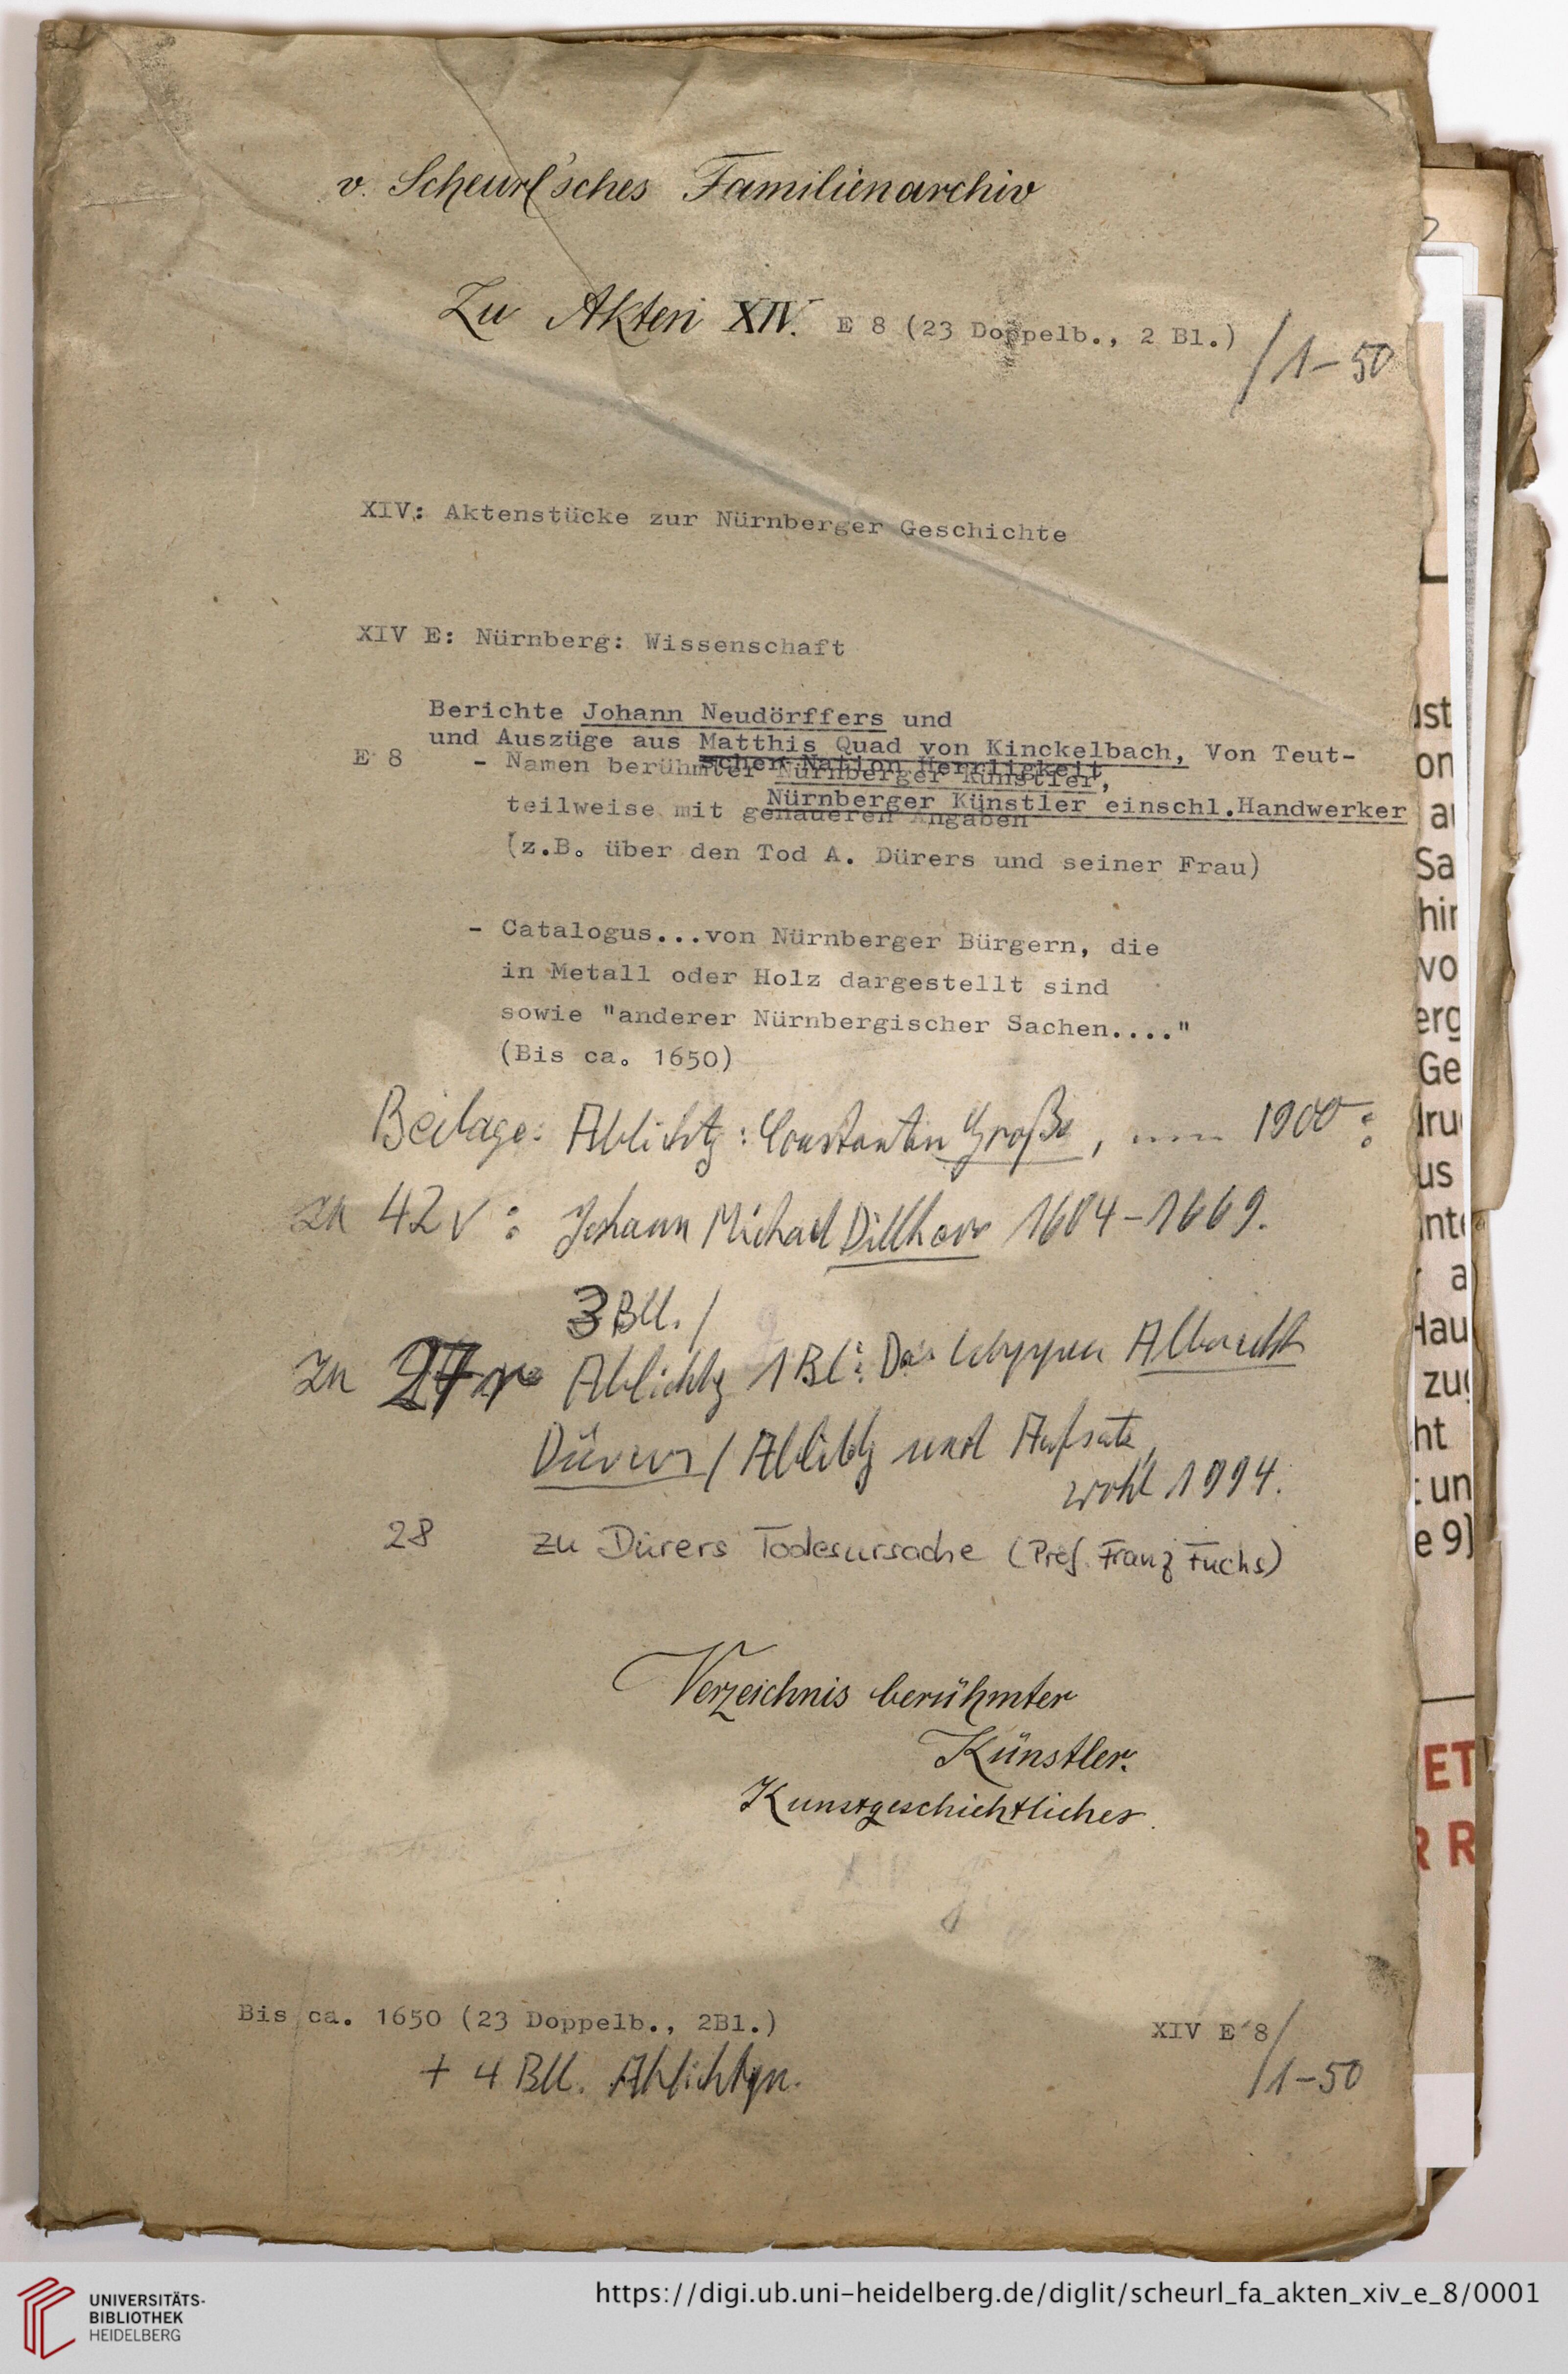 v. Scheurl'sches Familienarchiv
Zu Akten XIV. E 8 (23 Doppelb., 2 Bl.)
/1-50
XIV: Aktenstücke zur Nürnberger Geschichte
XIV E: Nürnberg: Wissenschaft
Berichte Johann Neudörffers und
und Auszüge aus Matthis Quad von Kinckelbach, Von Teut-
schen Nation Herrligkeit
E 8 - Namen berühmter Nürnberger Künstler,
Nürnberger Künstler einschl.Handwerker
teilweise mit genaueren Angaben
(z.B. über den Tod A. Dürers und seiner Frau)
- Catalogus...von Nürnberger Bürgern, die
in Metall oder Holz dargestellt sind
sowie "anderer Nürnbergischer Sachen...."
(Bis ca. 1650)
Beilage: Ablichtg: Constantin Große, um 1900:
zu 42v: Johann Michael Dillherr 1604-1669.
3 Bll. /
zu 27r Ablichtg 1 Bl: Das Wappen Albrecht
Dürers / Ablichtg und Aufsatz,
wohl 1994.
28 zu Dürers Todesursache (Prof. Franz Fuchs)
Verzeichnis berühmter
Künstler.
Kunstgeschichtliches.
Bis ca. 1650 (23 Doppelb., 2Bl.)
XIV E 8/
+ 4 Bll. Ablichtgn.
/1-50
ist
on
Sa
hir
vo
erg
Ge
dru
us
a
Hau
zu
ht
un
e 9)
ET
R R
UNIVERSITÄTS-
BIBLIOTHEK
HEIDELBERG
https://digi.ub.uni-heidelberg.de/diglit/scheurl_fa_akten_xiv_e_8/0001